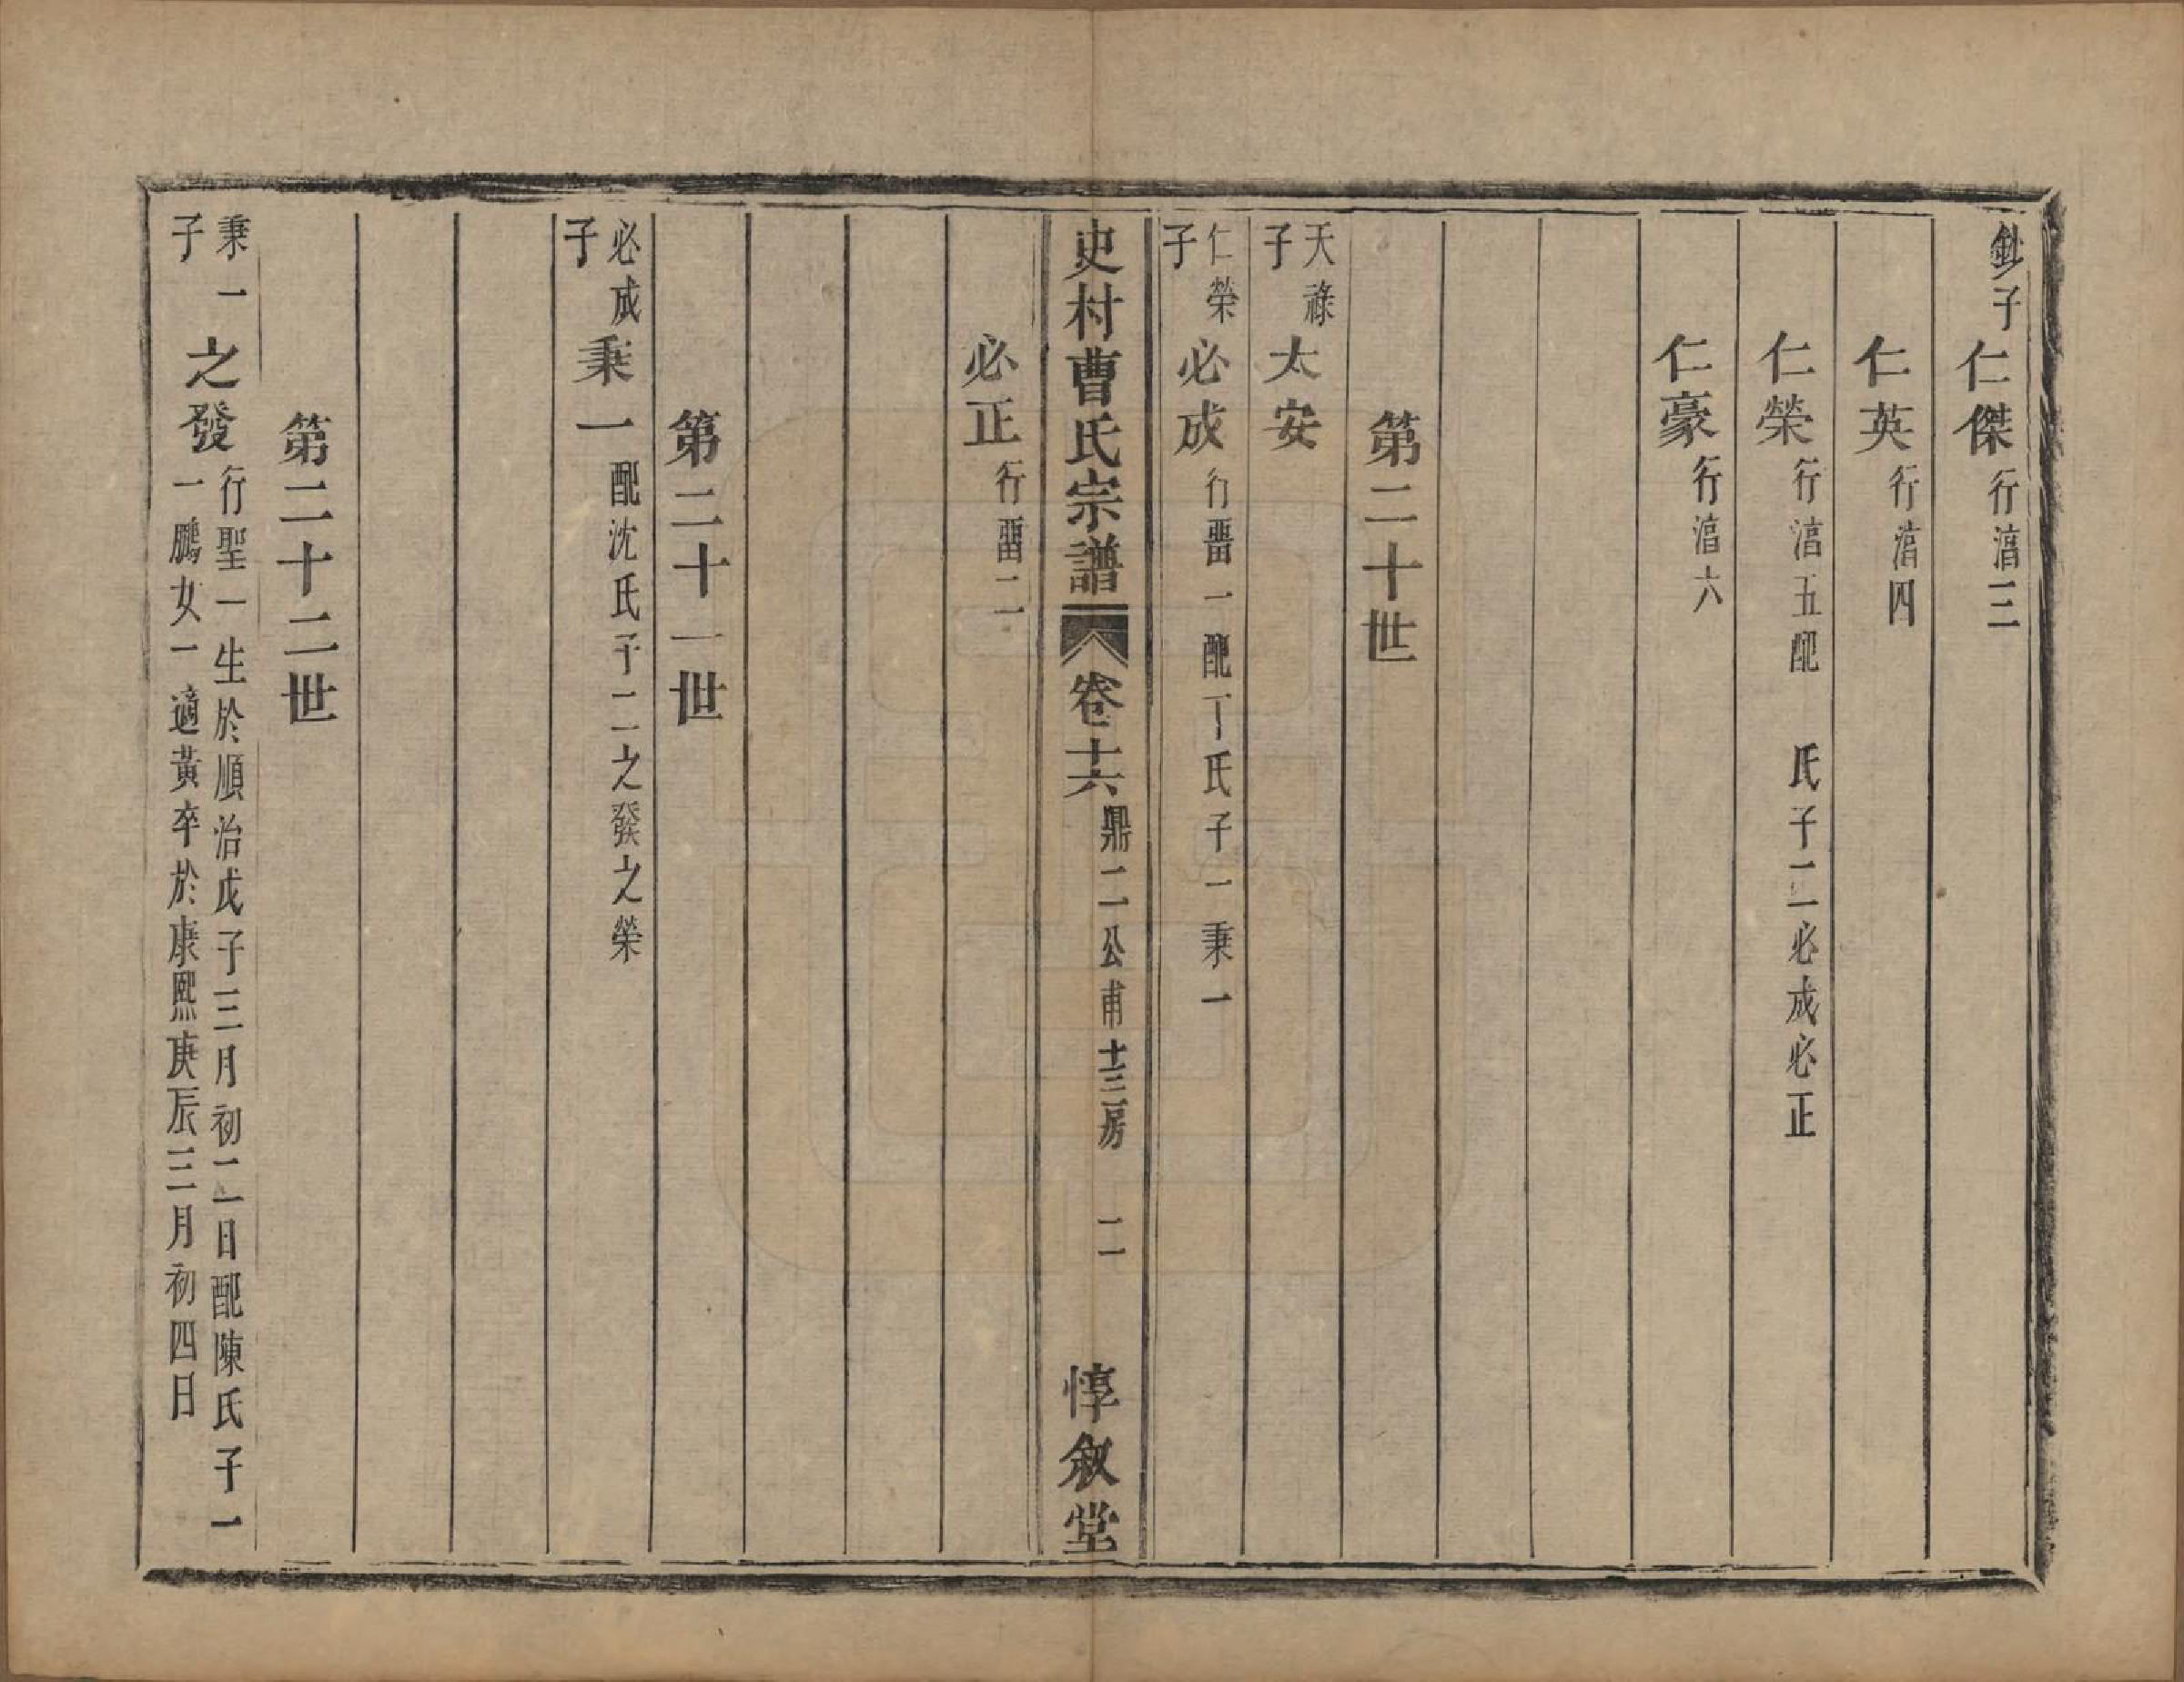 鈥子 仁傑 行湻三
仁英 行湻四
仁榮 行湻五配　氏子二必成必正
仁豪 行湻六
第二十世
天祿子 太安
仁榮子 必成 行畱一配丁氏子一秉一
史村曹氏宗譜 卷十六 鼎二公甫十三房 二 惇敘堂
必正 行畱二
第二十一世
必成子 秉一 配沈氏子二之發之榮
第二十二世
秉一子 之發 行聖一生於順治戊子三月初二日配陳氏子一
一鵬女一適黃卒於康熙庚辰三月初四日